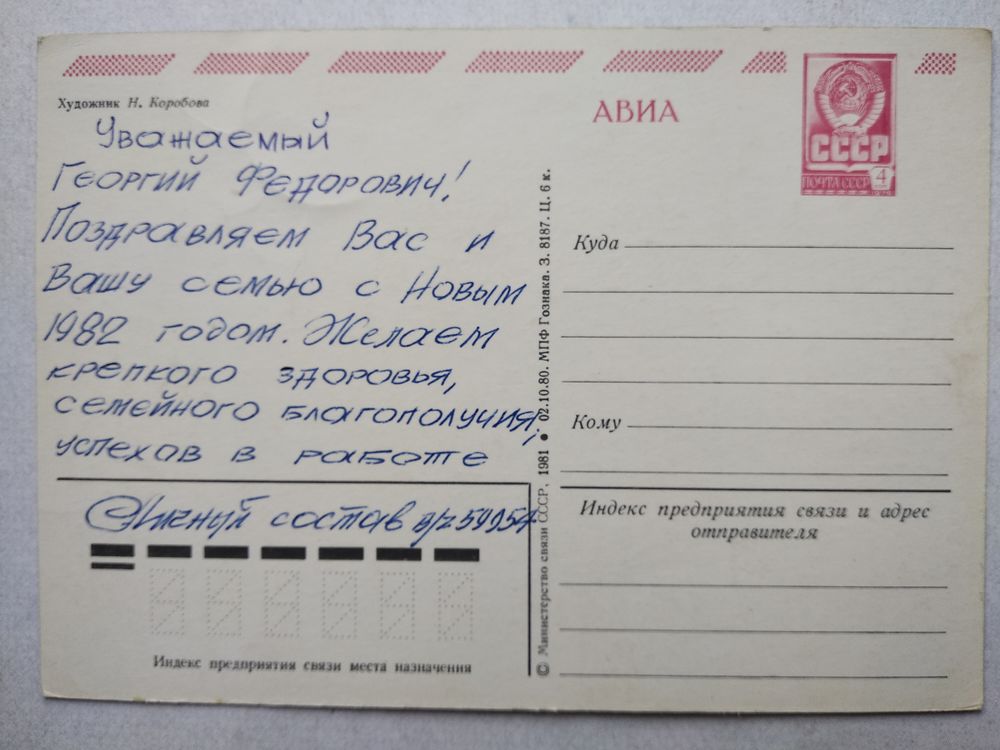 Художник Н. Коробова
Уважаемый
Георгий Федорович!
Поздравляем Вас и
Вашу семью с Новым
1982 годом. Желаем
крепкого здоровья,
семейного благополучия,
успехов в работе
Личный состав в/ч 59054
Индекс предприятия связи места назначения
© Министерство связи СССР, 1981 • 02.10.80. МПФ Гознака. З. 8187. Ц. 6 к.
АВИА
СССР
ПОЧТА СССР
4
Куда
Кому
Индекс предприятия связи и адрес
отправителя